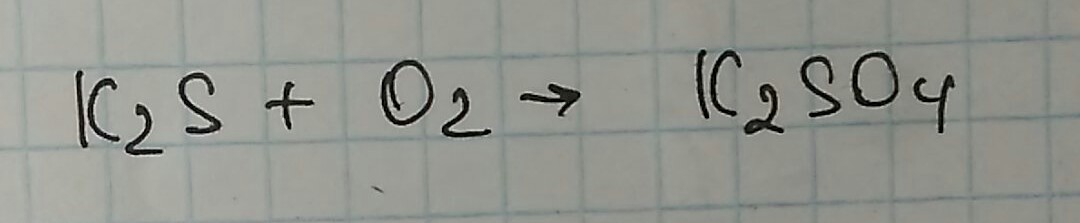 K₂S + O₂ → K₂SO₄